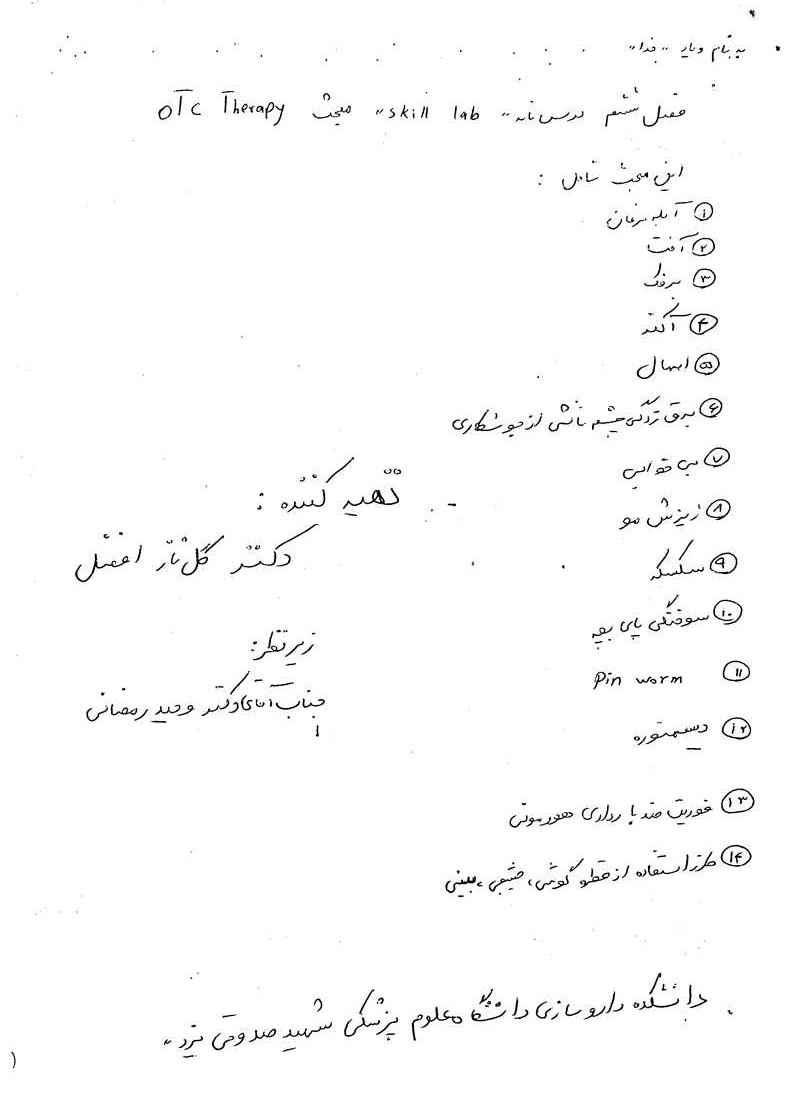 به نام و یاد "خدا"
فصل ششم درس نامه "skill lab" مبحث OTC Therapy
این مبحث شامل :
① آبله مرغان
② آفت
③ برفک
④ آکنه
⑤ اسهال
⑥ برق زدگی چشم ناشی از جوشکاری
⑦ بی خوابی
⑧ ریزش مو
⑨ سکسکه
⑩ سوختگی پای بچه
⑪ Pin worm
⑫ دیسمنوره
⑬ فوریت ضد بارداری هورمونی
⑭ طرز استفاده از قطره گوشی، چشمی، بینی
تهیه کننده :
دکتر گل ناز افضل
زیر نظر:
جناب آقای دکتر وحید رمضانی
دانشکده داروسازی دانشگاه علوم پزشکی شهید صدوقی یزد